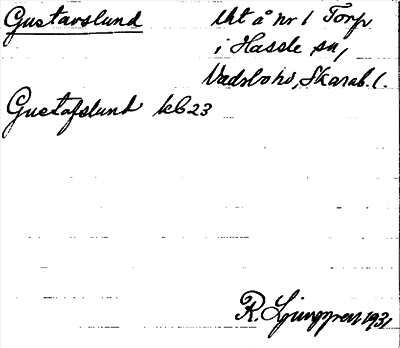 Gustavslund
Uht å nr 1 Torp
i Hassle sn,
Vadsbo hd, Skarab. l.
Gustafslund kb 23
R. Ljunggren 1931